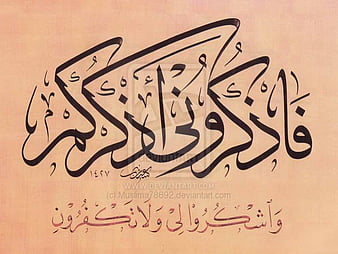 فَاذْكُرُونِي أَذْكُرْكُمْ
١٤٢٧
WWW.DEVIANTART.COM
(c) Muslima78692.deviantart.com
وَاشْكُرُوا لِي وَلَا تَكْفُرُونِ